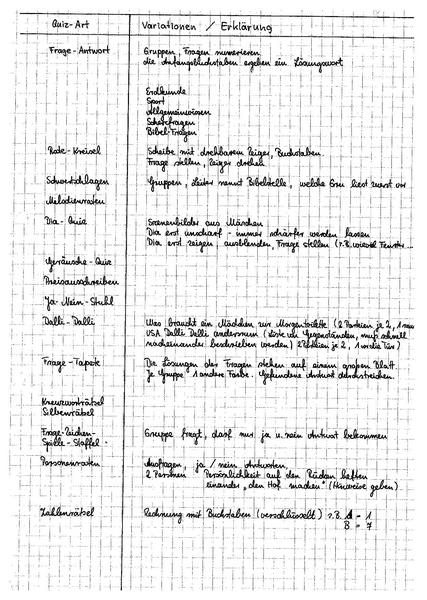 Quiz-Art Variationen / Erklärung
Frage-Antwort Gruppen, Fragen numerieren
die Anfangsbuchstaben ergeben ein Lösungswort
Erdkunde
Sport
Allgemeinwissen
Scherzfragen
Bibel-Fragen
Rate-Kreisel Scheibe mit drehbarem Zeiger, Buchstaben.
Frage stellen, Zeiger drehen
Schwertschlagen Gruppen, Leiter nennt Bibelstelle, welche liest zuerst vor
Melodienraten
Dia-Quiz Szenenbilder aus Märchen
Dia erst unscharf - immer schärfer werden lassen
Dia erst zeigen - ausblenden, Frage stellen (z.B. wieviel Fenster...
Geräusche-Quiz
Preisausschreiben
Ja-Nein-Stuhl
Dalli-Dalli Was braucht ein Mädchen zur Morgentoilette (2 Parteien je 2, 1
USA Dalli Dalli andersrum (Liste von Gegenständen, muß schnell
nacheinander beschrieben werden) 2 Parteien je 2, 1 vor die Tür)
Frage-Tapete Die Lösungen der Fragen stehen auf einem großen Blatt.
Je Gruppe 1 andere Farbe. Gefundene Antwort durchstreichen.
Kreuzworträtsel
Silbenrätsel
Frage-Zeichen-
Spiele-Staffel Gruppe fragt, darf nur ja u. nein Antwort bekommen
Personenraten Ausfragen, ja / nein Antworten,
2 Personen Persönlichkeit auf den Rücken heften
einander „den Hof machen" (Hinweise geben)
Zahlenrätsel Rechnung mit Buchstaben (verschlüsselt) z.B. A = 1
B = 7